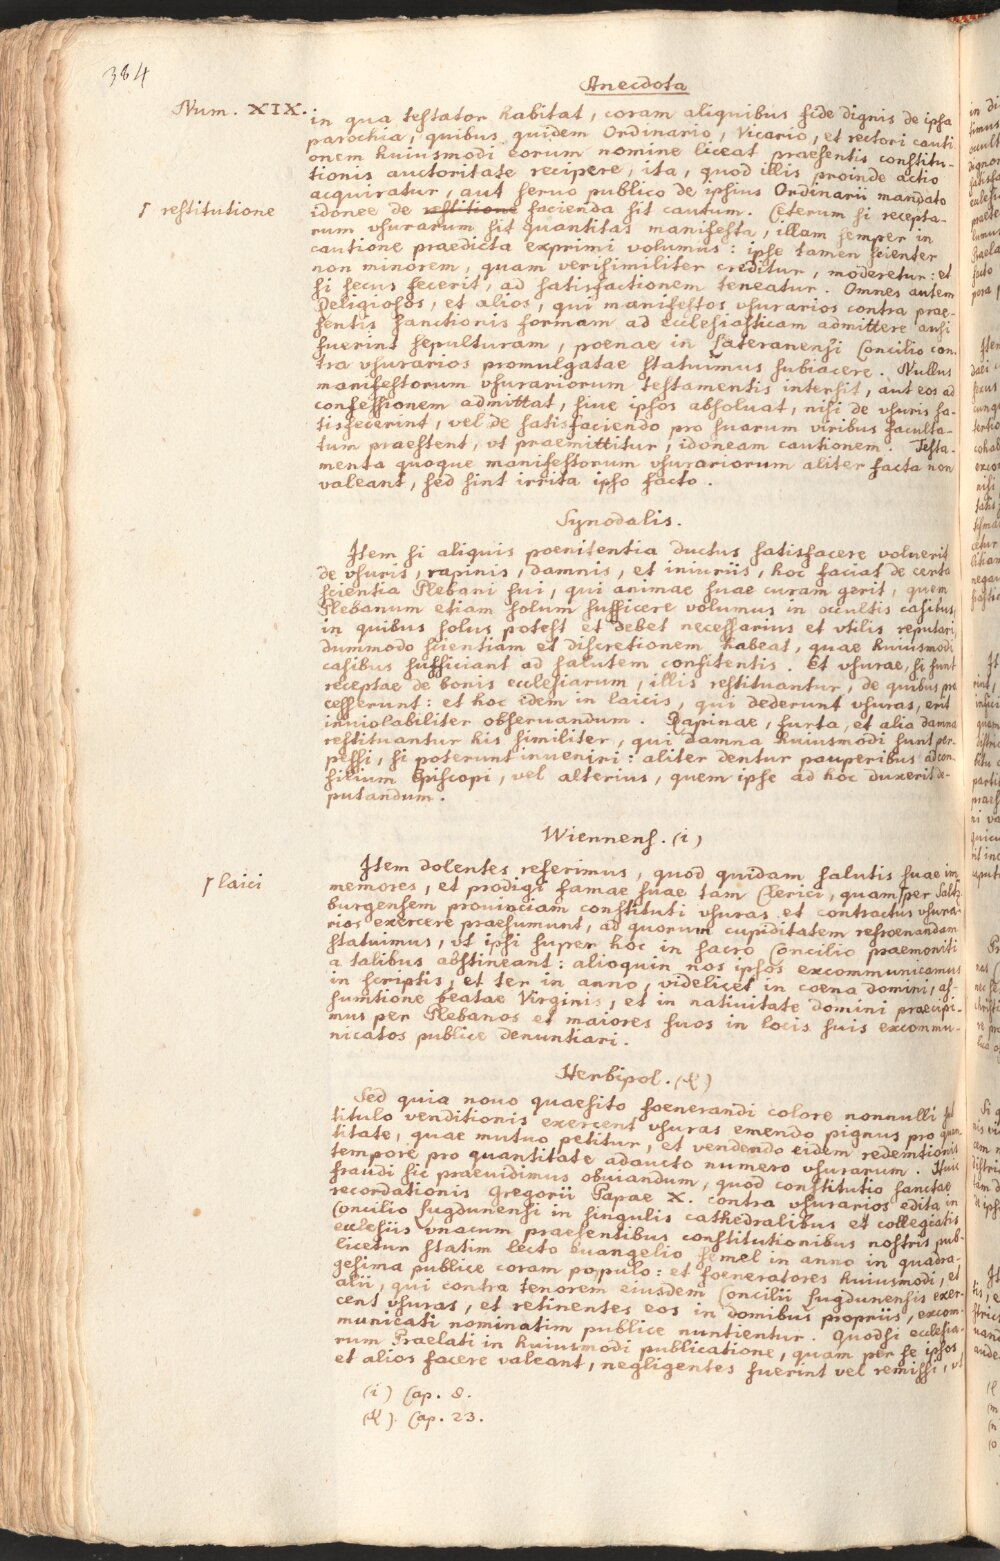 384
Anecdota
Num. XIX.
in qua testator habitat, coram aliquibus fide dignis de ipsa
parochia, quibus quidem Ordinario, Vicario, et rectori cauti
onem huiusmodi eorum nomine liceat praesentis constitu-
tionis auctoritate recipere, ita, quod illis proinde actio
acquiratur, aut seruo publico de ipsius Ordinarii mandato
ſ restitutione
idonee de restitione facienda sit cautum. Ceterum si recepta-
rum vsurarum sit quantitas manifesta, illam semper in
cautione praedicta exprimi volumus: ipse tamen scienter
non minorem, quam verisimiliter creditur, moderetur: et
si secus fecerit, ad satisfactionem teneatur. Omnes autem
Religiosos, et alios, qui manifestos vsurarios contra prae-
sentis sanctionis formam ad ecclesiasticam admittere ausi
fuerint sepulturam, poenae in Lateranensi Concilio con-
tra vsurarios promulgatae statuimus subiacere. Nullus
manifestorum vsurariorum testamentis intersit, aut eos ad
confessionem admittat, siue ipsos absoluat, nisi de vsuris sa-
tisfecerint, vel de satisfaciendo pro suarum viribus faculta-
tum praestent, vt praemittitur, idoneam cautionem. Testa-
menta quoque manifestorum vsurariorum aliter facta non
valeant, sed sint irrita ipso facto.
Synodalis.
Item si aliquis poenitentia ductus satisfacere voluerit
de vsuris, rapinis, damnis, et iniuriis, hoc faciat de certa
scientia Plebani sui, qui animae suae curam gerit, quem
Plebanum etiam solum sufficere volumus in occultis casibus,
in quibus solus potest et debet necessarius et vtilis reputari,
dummodo scientiam et discretionem habeat, quae huiusmodi
casibus sufficiant ad salutem confitentis. Et vsurae, si sunt
receptae de bonis ecclesiarum, illis restituantur, de quibus pro
cesserunt: et hoc idem in laicis, qui dederunt vsuras, erit
inuiolabiliter obseruandum. Rapinae, furta, et alia damna
restituantur his similiter, qui damna huiusmodi sunt per-
pessi, si poterunt inueniri: aliter dentur pauperibus ad con-
silium Episcopi, vel alterius, quem ipse ad hoc duxerit de-
putandum.
Wiennens. (i)
Item dolentes referimus, quod quidam salutis suae im-
ſ laici
memores, et prodigi famae suae tam Clerici, quam ſ per Saltz-
burgensem prouinciam constituti vsuras et contractus vsura-
rios exercere praesumunt, ad quorum cupiditatem refroenandam
statuimus, vt ipsi super hoc in sacro Concilio praemoniti
a talibus abstineant: alioquin nos ipsos excommunicamus
in scriptis, et ter in anno, videlicet in coena domini, as-
sumtione beatae Virginis, et in natiuitate domini praecipi-
mus per Plebanos et maiores suos in locis suis excommu-
nicatos publice denuntiari.
Herbipol. (k)
Sed quia nouo quaesito foenerandi colore nonnulli sub
titulo venditionis exercent vsuras emendo pignus pro quan
titate, quae mutuo petitur, et vendendo eidem redemtionis
tempore pro quantitate adaucto numero vsurarum. Huic
fraudi sic praeuidimus obuiandum, quod constitutio sanctae
recordationis Gregorii Papae X. contra vsurarios edita in
Concilio Lugdunensi in singulis cathedralibus et collegiatis
ecclesiis vnacum praesentibus constitutionibus nostris pub-
licetur statim lecto Euangelio semel in anno in quadra-
gesima publice coram populo: et foeneratores huiusmodi, et
alii, qui contra tenorem eiusdem Concilii Lugdunensis exer-
cent vsuras, et retinentes eos in domibus propriis, excom-
municati nominatim publice nuntientur. Quodsi ecclesia-
rum Praelati in huiusmodi publicatione, quam per se ipsos,
et alios facere valeant, negligentes fuerint vel remissi, vl
(i) Cap. 8.
(k) Cap. 23.